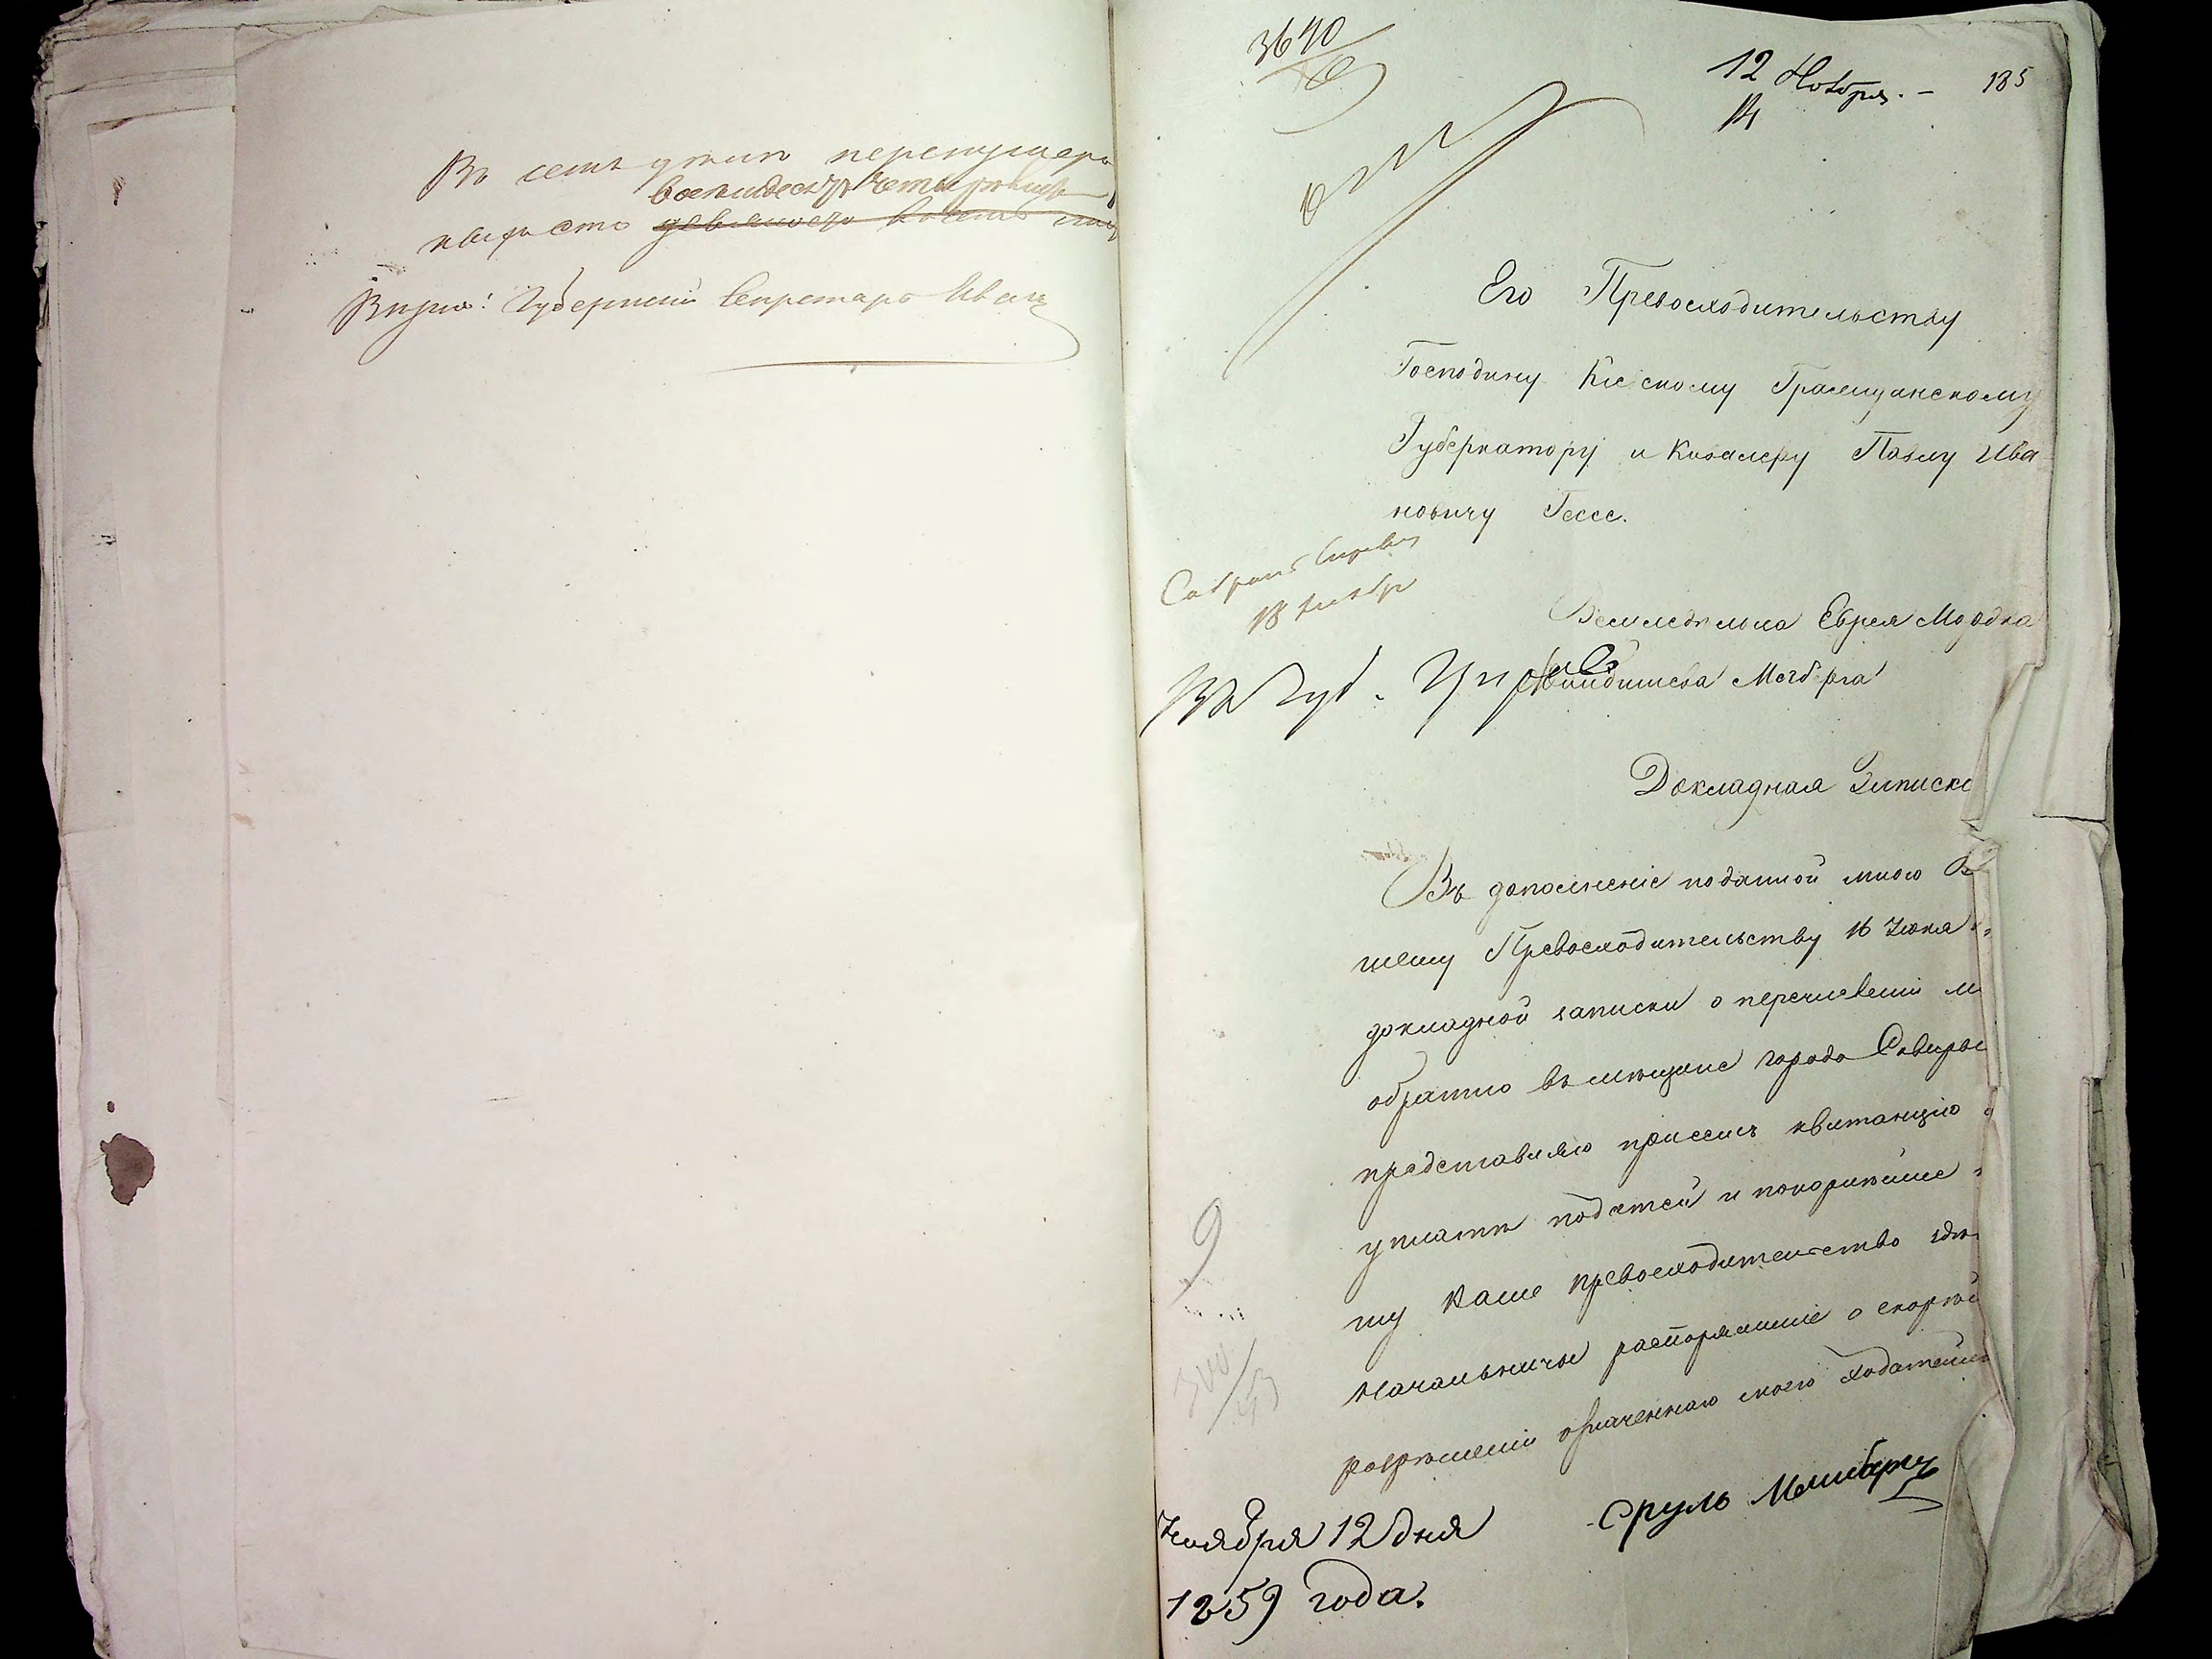 Въ семъ дѣлѣ перенумеро
восемдесятъ четыре
ныхъ сто девяносто восемь
Вѣрно: Губернскій Секретарь Иван
3640
12 Ноября. - 185
14
Его Превосходительству
Господину Кіевскому Гражданскому
Губернатору и Кавалеру Павлу Ива
новичу Гессе.
18 Ноябр
Земледельца Еврея Мордка
Въ Губ.
Докладная Записка
Въ дополненіе поданной мною Ва
шему Превосходительству 16 Іюня
докладной записки о перечисленіи ме
обратно въ мещане города Сквиры
представляю присемъ квитанцію о
уплатѣ податей и покорнѣйше
шу Ваше превосходительство здѣ
Начальничье распоряженіе о скорѣй
разрѣшеніи означеннаго моего ходатайст
Сруль
9
Ноября 12 дня
1859 года.